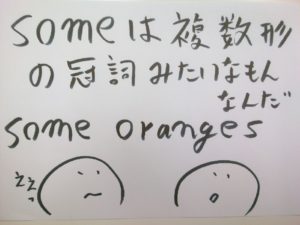 someは複数形
の冠詞みたいなもん
なんだ
some oranges
ええっ